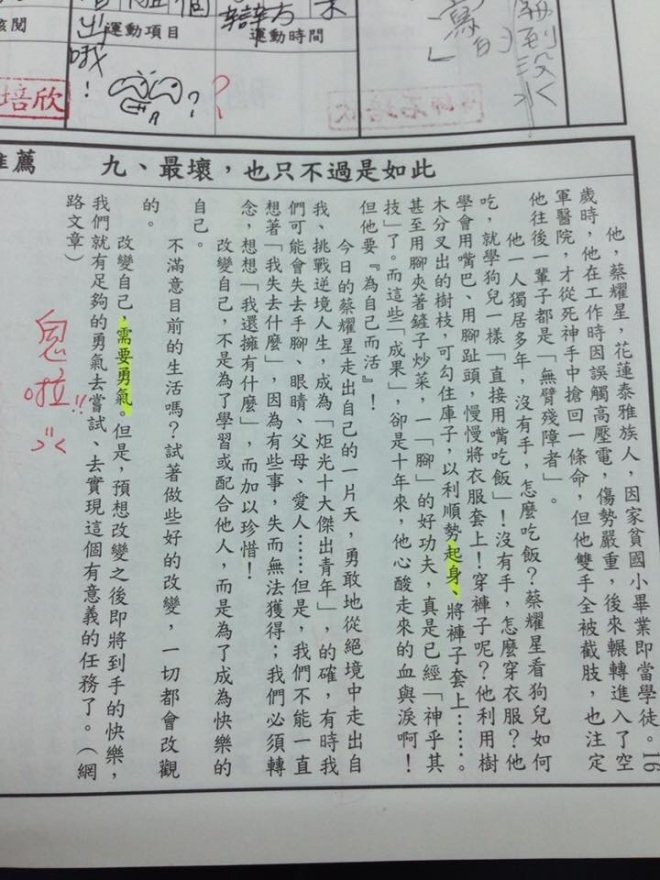 閱
運動項目
運動時間
出哦！
？？
個
培欣
推薦
九、最壞，也只不過是如此
他，蔡耀星，花蓮泰雅族人，因家貧國小畢業即當學徒。16
歲時，他在工作時因誤觸高壓電，傷勢嚴重，後來輾轉進入了空
軍醫院，才從死神手中搶回一條命，但他雙手全被截肢，也注定
他往後一輩子都是「無臂殘障者」。
他一人獨居多年，沒有手，怎麼吃飯？蔡耀星看狗兒如何
吃，就學狗兒一樣「直接用嘴吃飯」！沒有手，怎麼穿衣服？他
學會用嘴巴、用腳趾頭，慢慢將衣服套上！穿褲子呢？他利用樹
木分叉出的樹枝，可勾住庫子，以利順勢起身、將褲子套上……。
甚至用腳夾著鏟子炒菜，一「腳」的好功夫，真是已經「神乎其
技」了。而這些「成果」，卻是十年來，他心酸走來的血與淚啊！
但他要『為自己而活』！
今日的蔡耀星走出自己的一片天，勇敢地從絕境中走出自
我、挑戰逆境人生，成為「炬光十大傑出青年」，的確，有時我
們可能會失去手腳、眼睛、父母、愛人……但是，我們不能一直
想著「我失去什麼」，因為有些事，失而無法獲得；我們必須轉
念，想想「我還擁有什麼」，而加以珍惜！
改變自己，不是為了學習或配合他人，而是為了成為快樂的
自己。
不滿意目前的生活嗎？試著做些好的改變，一切都會改觀
的。
改變自己，需要勇氣。但是，預想改變之後即將到手的快樂，
我們就有足夠的勇氣去嘗試、去實現這個有意義的任務了。（網
路文章）
鬼啦!!